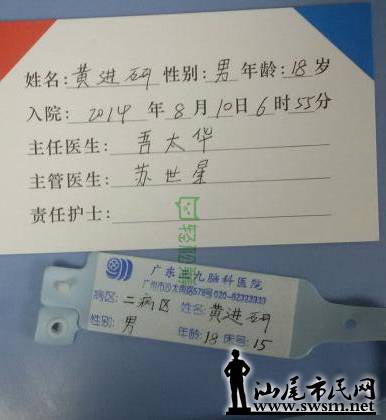 姓名:黄进研 性别:男 年龄:18岁
入院:2014年8月10日6时55分
主任医生:吾太华
主管医生:苏世星
责任护士:
轻松筹
广东三九脑科医院
广州市沙太南路578号 020-62323333
病区:二病区 姓名:黄进研
性别:男 年龄:18 床号:15
汕尾市民网
www.swsm.net